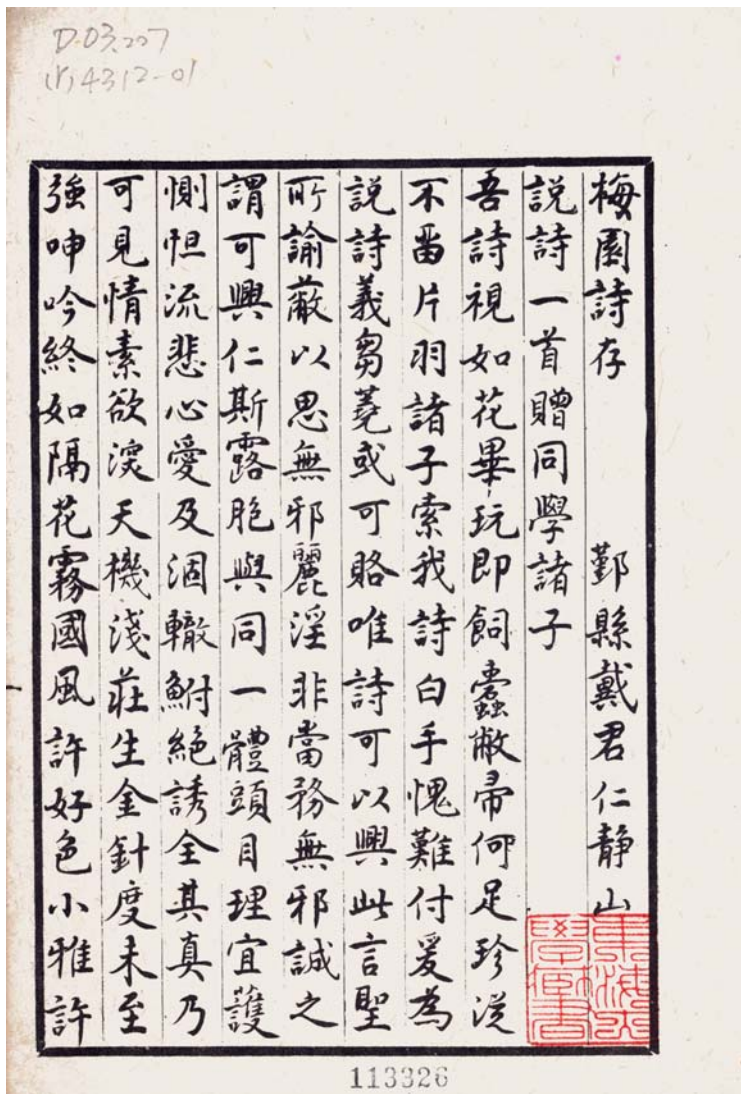 D.03.227
(Y)4312-01
梅園詩存 鄞縣戴君仁静山
説詩一首贈同學諸子
吾詩視如花畢玩即飼蠹敝帚何足珍渓
不留片羽諸子索我詩白手愧難付爰為
説詩義芻蕘或可賂唯詩可以興此言聖
所諭蔽以思無邪麗淫非當務無邪誠之
謂可興仁斯露胞與同一體頭目理宜護
惻怛流悲心愛及涸轍鮒絶誘全其真乃
可見情素欲深天機淺莊生金針度未至
強呻吟終如隔花霧國風許好色小雅許
東海大學藏書
113326